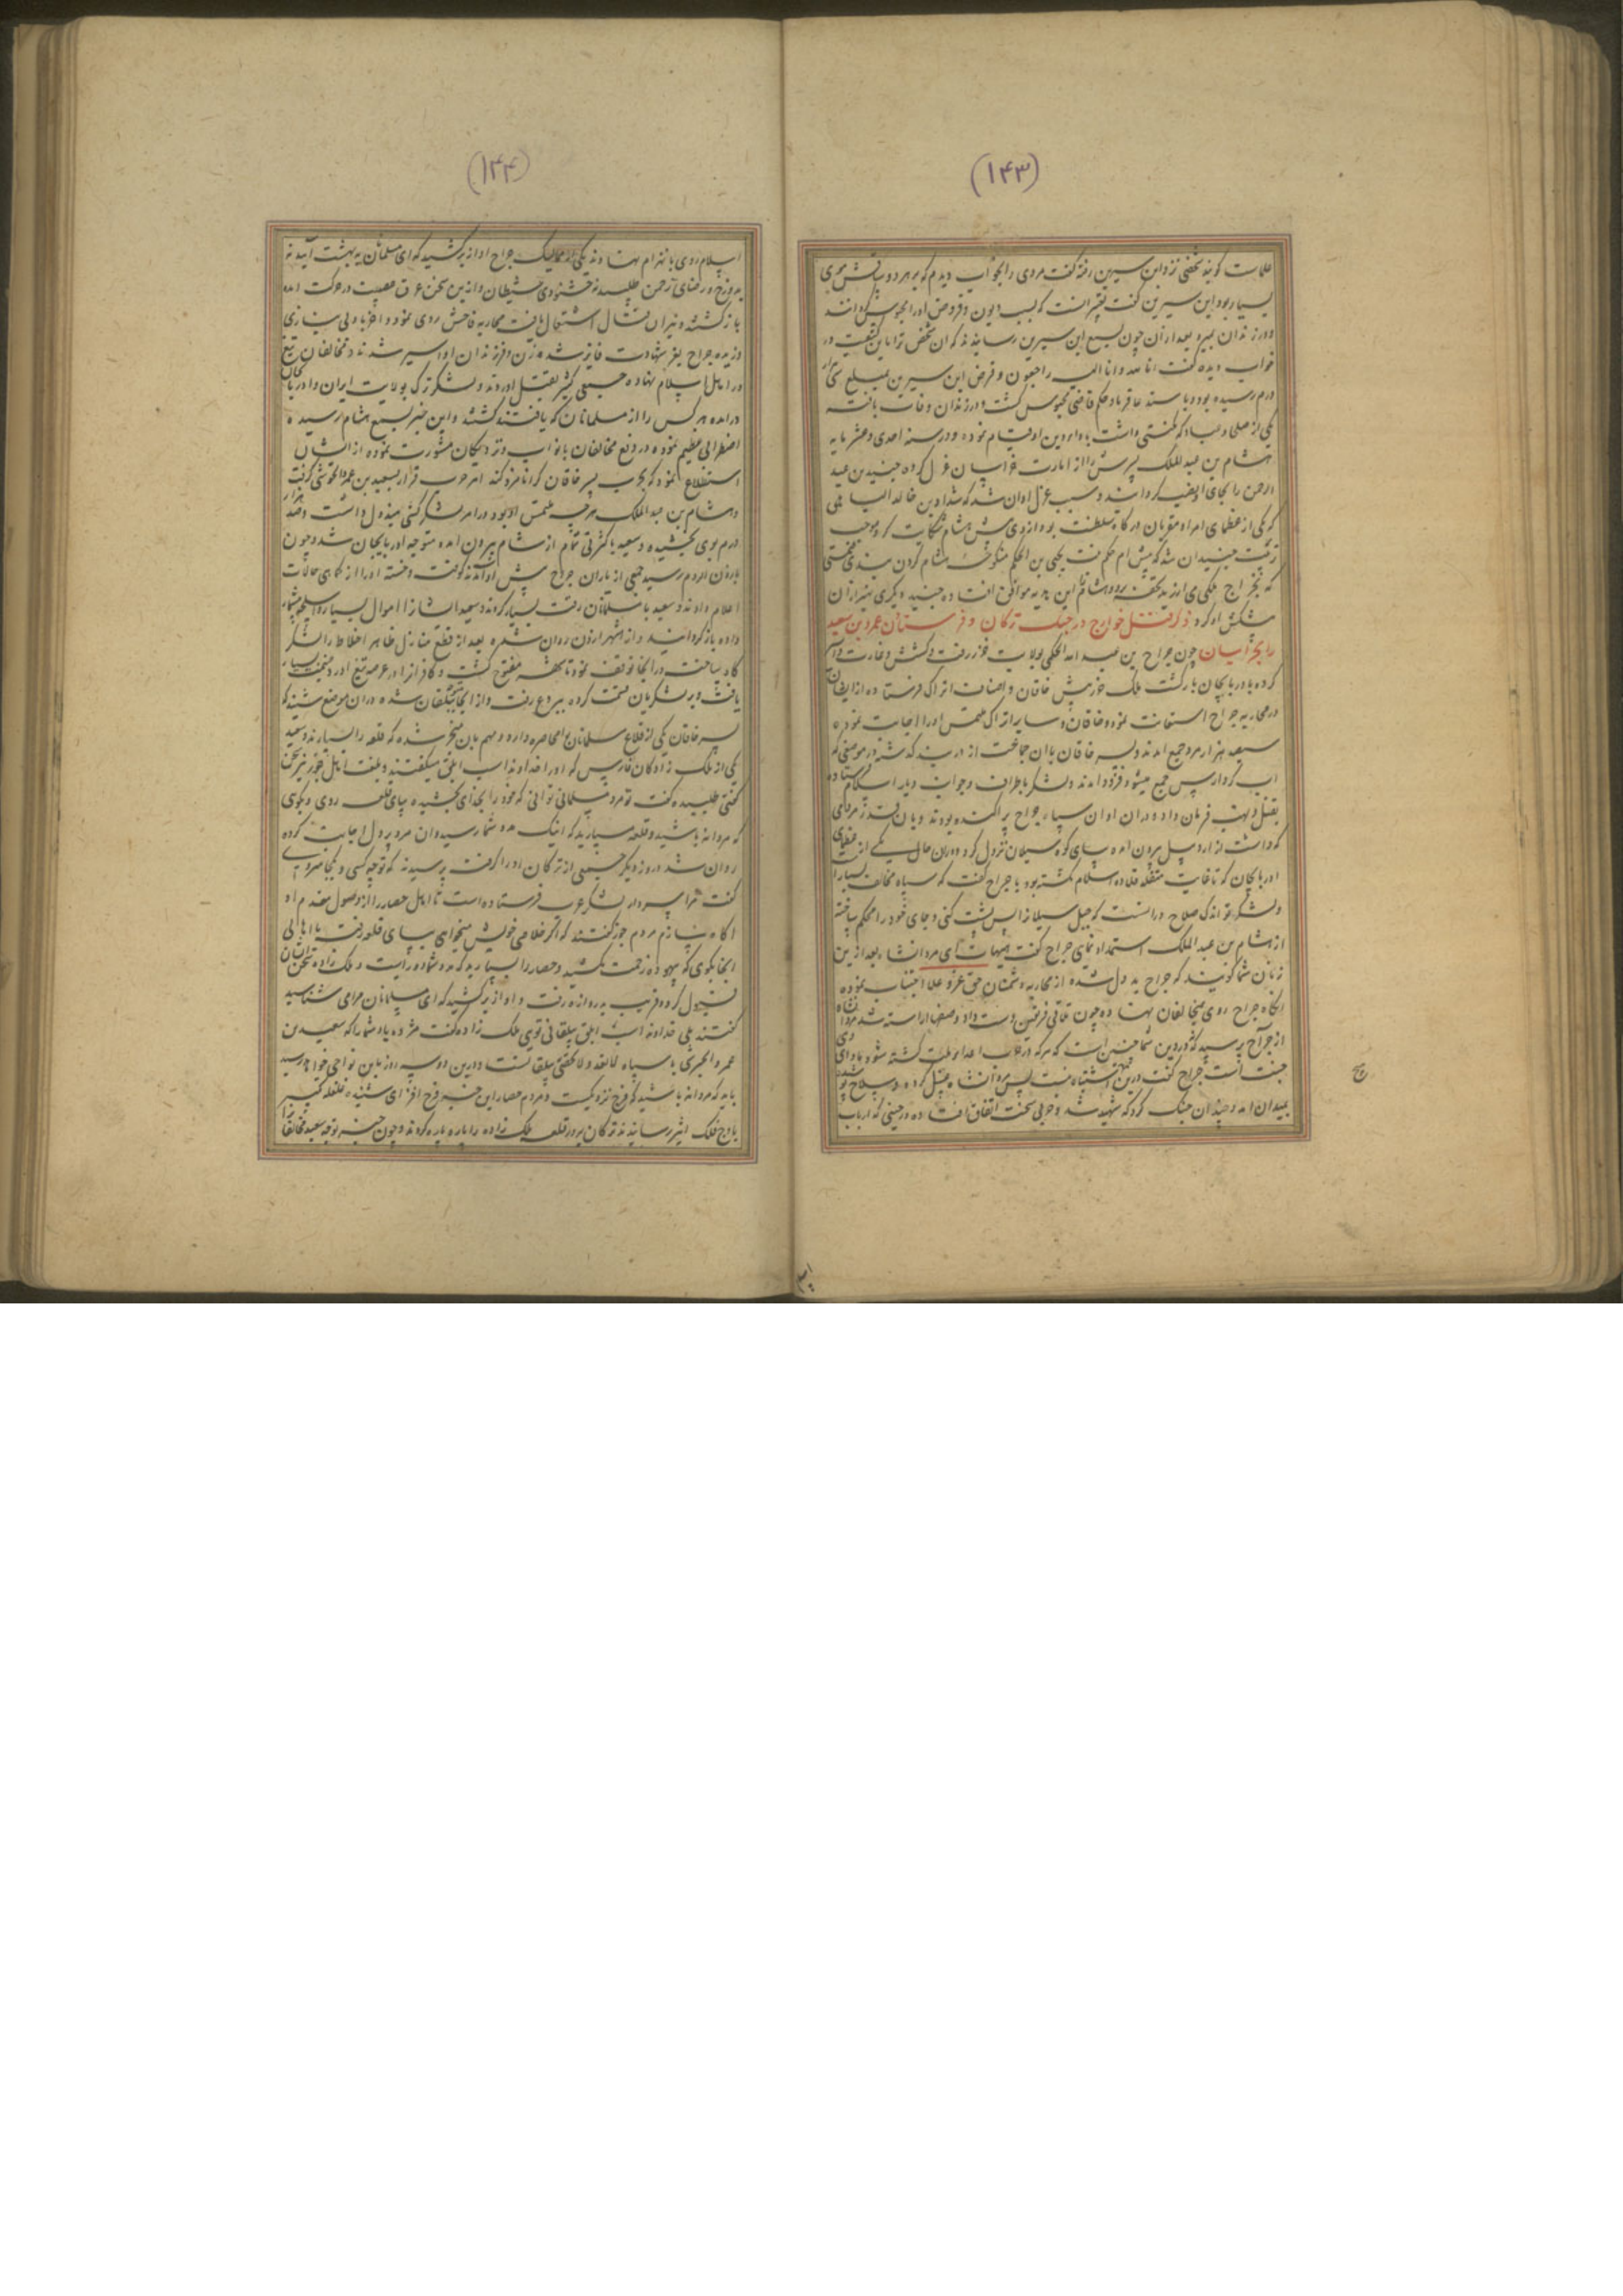 (۱۴۳)
علامت گویند شخصی نزد ابن سیرین رفته گفت مردی را بخواب دیدم که بر هر دو ساقش موی
بسیار بود ابن سیرین گفت تعبیر آنست که بسبب دیون و قروض او را محبوس گردانند
و در زندان بمیرد بعد از آن چون بسمع ابن سیرین رسانیدند که آن شخص ترا باین کیفیت در
خواب دیده گفت انا لله و انا الیه راجعون و قرض ابن سیرین بمبلغ سی هزار
درم رسیده بود و باستدعا قرباد حکم قاضی محبوس گشت و در زندان وفات یافته
یکی از صلحا و عباد که مکنتی داشت باداء دین او قیام نمود و در سنه احدی و عشر مایه
هشام بن عبد الملک را از امارت خراسان عزل کرده جنید بن عبد
الرحمن را بجای او نصب گردانید و سبب عزل او آن شد که شداد بن خالد
که یکی از عظمای امرا و مقربان درگاه سلطنت بود از وی پیش هشام شکایت کرد و موجب
تربیت جنید آن شد که پیش ام حکیم بنت یحیی بن الحکم منکوحه هشام گردن بندی
که بخراج ملکی می ارزید تحفه برد و هشام را این هدیه موافق افتاده جنید دیگری نیز از آن
پیشکش او کرد ذکر قتل خوارج در جنک ترکان و فرستادن عمرو بن سعید
را بحرابسان چون جراح بن عبد الله الحکمی بولایت خزر رفت و کشش و غارت
کرده باذربایجان بازگشت ملک خزر پیش خاقان و اصناف اتراک فرستاده از ایشان
در محاربه جراح استعانت نمود و خاقان و سایر اتراک ملتمس او را اجابت نموده
سیصد هزار مرد جمع آمدند و پسر خاقان با آن جماعت از دربند گذشته در موضعی که
آب کر و ارس جمع میشود فرود آمدند و لشکر باطراف و جوانب دیار اسلام فرستاده
بقتل و نهب فرمان داد و در آن اوان سپاه جراح پراکنده بودند و با آن قدر مردمی
که داشت از اردبیل بیرون آمده بپای کوه سبلان نزول کرد و در آن حال یکی از عظمای
آذربایجان که تا غایت متقلد قلاده اسلام نگشته بود با جراح گفت که سپاه مخالف بسیار است
و لشکر تو اندک صلاح در آنست که جبل سبلان را پس پشت کنی و جای خود را محکم ساخته
از هشام بن عبد الملک استمداد نمایی جراح گفت هیهات ای مردانشاه بعد ازین
زنان شما گویند که جراح بد دل شده از محاربه دشمنان حق عز و علا اجتناب نموده
آنگاه جراح روی بمخالفان نهاده چون تلاقی فریقین دست داد و صفها آراسته شد مردانشاه
از جراح پرسید که در دین شما چنین است که هرکه در حرب اعدا ملت کشته شود ماوای وی
جنت است جراح گفت درین سخن اشتباه نیست پس مردانشاه غسل کرده و سلاح پوشیده
بمیدان آمد و چندان جنک کرد که شهید شد و حربی سخت اتفاق افتاده در حینی که ارباب
(۱۴۴)
اسلام روی بانهزام نهادند یکی از ممالیک جراح آواز برکشید که ای مسلمانان به بهشت آیید نه
بدوزخ و رضای رحمن طلبید نه خشنودی شیطان و ازین سخن عرق حمیت در حرکت آمده
بازگشتند و نیران قتال اشتعال یافت محاربه فاحش روی نمود و آخر
جراح بعز شهادت فایز شده زن و فرزندان او اسیر شدند و مخالفان تیغ
در اهل اسلام نهاده جمعی کثیر بقتل آوردند و لشکر ترک بولایت ایران و اذربایجان
درآمده هر کس را از مسلمانان که یافتند کشتند و این خبر بسمع هشام رسیده
اضطرابی عظیم نموده در دفع مخالفان با نواب و نزدیکان مشورت نموده از ایشان
استطلاع نمود که بحرب پسر خاقان کرا نامزد کند امر حرب قرار بسعید بن عمرو الحرشی گرفت
و هشام بن عبد الملک هرچه ملتمس او بود در امر لشکرکشی مبذول داشت و صد هزار
درم بوی بخشیده و سعید با کثرتی تمام از شام بیرون آمده متوجه اذربایجان شد و چون
بارزن الروم رسید جمعی از یاران جراح پیش او آمدند کوفته و خسته او را از کماهی حالات
اعلام دادند و سعید با مسلمانان رقت بسیار کردند و سعید ایشان را اموال بسیار و سلیح بیشمار
داده بازگردانید و از شهر ارزن روان شده بعد از قطع منازل ظاهر اخلاط را لشکر
گاه ساخت و در آنجا توقف نمود تا قلعه مفتوح گشت و کافران را عرضه تیغ آورد و غنیمت بسیار
یافت و بر لشکریان قسمت کرده ببردع رفت و از آنجا به بیلقان شده در آن موضع شنید که
پسر خاقان یکی از قلاع مسلمانان را محاصره دارد و مهم بآن منجر شده که قلعه را بسپارند و سعید
یکی از ملک زادگان فارس که او را خداوند اسب ابلق میگفتند و بلغت اهل خزر نیز سخن
گفتی طلبیده گفت تو مرد مسلمانی توانی که خود را بخدای بخشیده بپای قلعه روی و بگوی
که مردانه باشید و قلعه مسپارید که اینک مدد شما رسید و آن مرد پر دل اجابت کرده
روان شد و روز دیگر جمعی از ترکان او را گرفته پرسیدند که تو چه کسی و بکجا میروی
گفت مرا سردار لشکر عرب فرستاده است تا اهل حصار را از وصول مقدم او
آگاه سازم مردم خزر گفتند که اگر خلاصی خویش میخواهی بپای قلعه رفته با اهالی
آنجا بگوی که بیهوده زحمت نکشید و حصار را بسپارید که مدد شما دور است و ملک زاده سخن ایشان
قبول کرده قریب بدروازه رفت و آواز برکشید که ای مسلمانان مرا می شناسید
گفتند بلی خداوند اسب ابلق بیلقانی تویی ملک زاده گفت مژده باد شما را که سعید بن
عمرو الحرشی با سپاه لا تعد و لا تحصی ببیلقانست و درین دو سه روز باین نواحی خواهد رسید
باید که مردانه باشید که فرج نزدیکست و مردم حصار این خبر فرح افزای شنیده غلغله تکبیر
باوج فلک اثیر رسانیدند ترکان بر در قلعه ملک زاده را پاره پاره کردند و چون خبر توجه سعید مخالفان